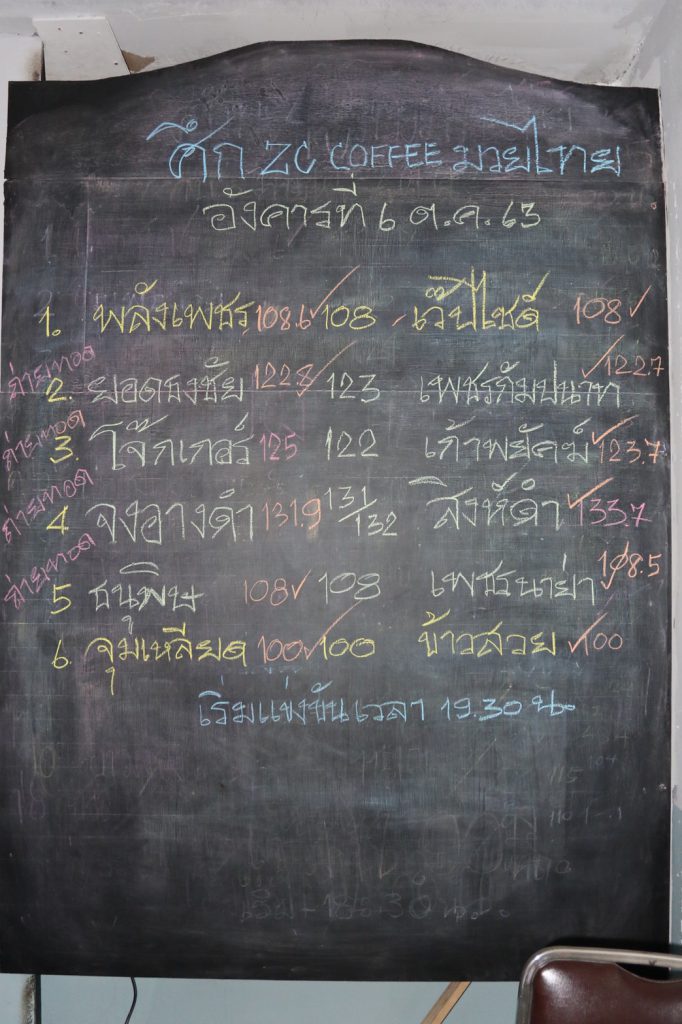 ศึก ZC COFFEE มวยไทย
อังคารที่ 6 ต.ค. 63
1. พลังเพชร 108.6✓ 108 เว็ปไซด์ 108✓
ถ่ายทอด 2. ยอดธงชัย 122.8✓ 123 เพชรกัมปนาท ✓122.7
ถ่ายทอด 3. โจ๊กเกอร์ 125 122 เก้าพยัคฆ์ ✓123.7
ถ่ายทอด 4 จงอางดำ 131.9 131/132 สิงห์ดำ ✓133.7
ถ่ายทอด 5 ธนูพิษ 108✓ 108 เพชรนาย่า ✓108.5
6. จุมเหลียด 100✓ 100 ข้าวสวย ✓100
เริ่มแข่งขันเวลา 19.30 น.